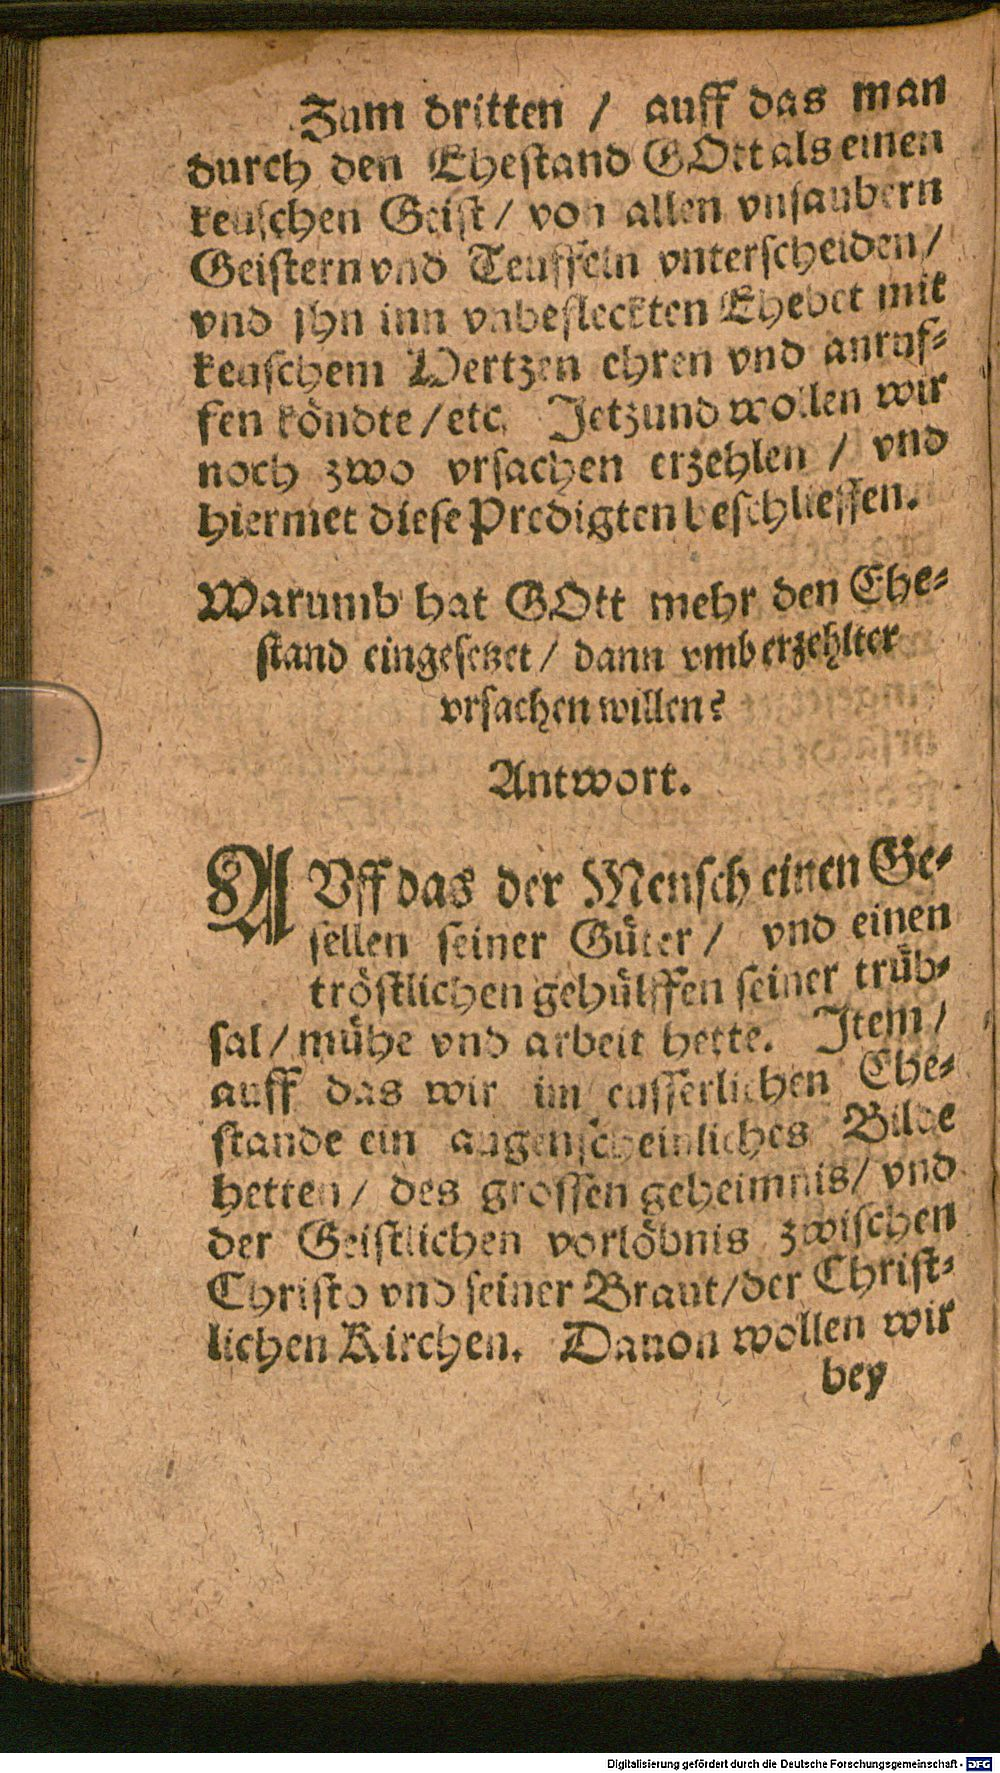 Zum dritten / auff das man
durch den Ehestand GOtt als einen
keuschen Geist / von allen vnsaubern
Geistern vnd Teuffeln vnterscheiden /
vnd jhn inn vnbefleckten Ehebet mit
keuschem Hertzen ehren vnd anruf-
fen köndte / etc. Jetzund wollen wir
noch zwo vrsachen erzehlen / vnd
hiermet diese Predigten beschliessen.
Warumb hat GOtt mehr den Ehe-
stand eingesetzet / dann vmb erzehlter
vrsachen willen?
Antwort.
AVff das der Mensch einen Ge-
sellen seiner Güter / vnd einen
tröstlichen gehülffen seiner trüb-
sal / mühe vnd arbeit hette. Item /
auff das wir im eusserlichen Ehe-
stande ein augenscheinliches Bilde
hetten / des grossen geheimnis / vnd
der Geistlichen vorlöbnis zwischen
Christo vnd seiner Braut / der Christ-
lichen Kirchen. Dauon wollen wir
bey
Digitalisierung gefördert durch die Deutsche Forschungsgemeinschaft - DFG